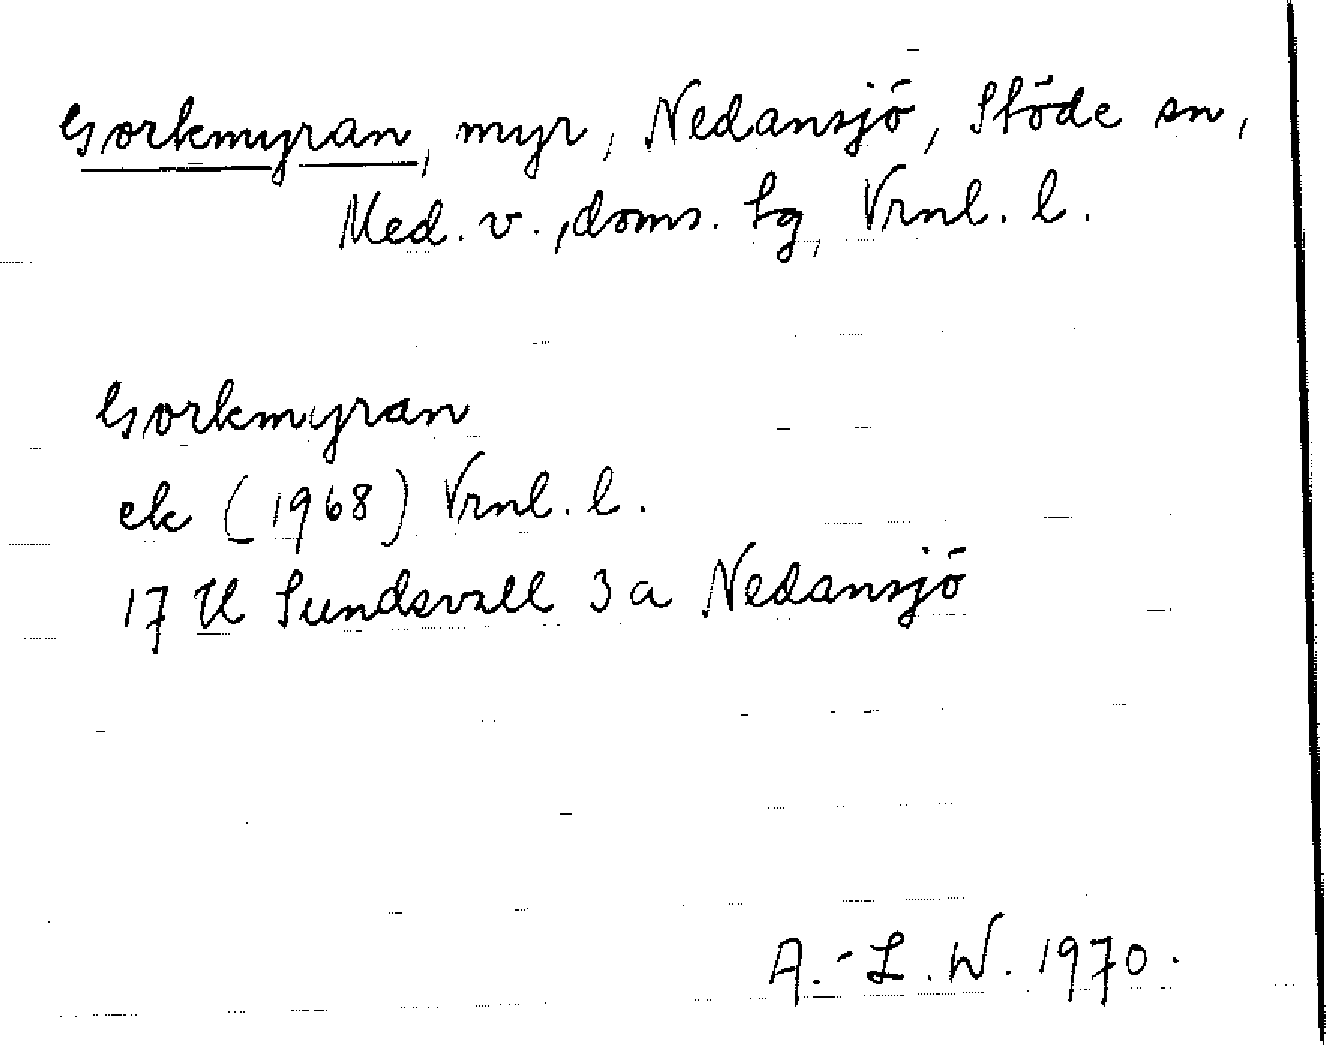 Gorkmyran, myr, Nedansjö, Stöde sn,
Med. v., doms. sg, Vrnl. l.
Gorkmyran
ek (1968) Vrnl. l.
17 H Sundsvall 3 a Nedansjö
A.-L. W. 1970.